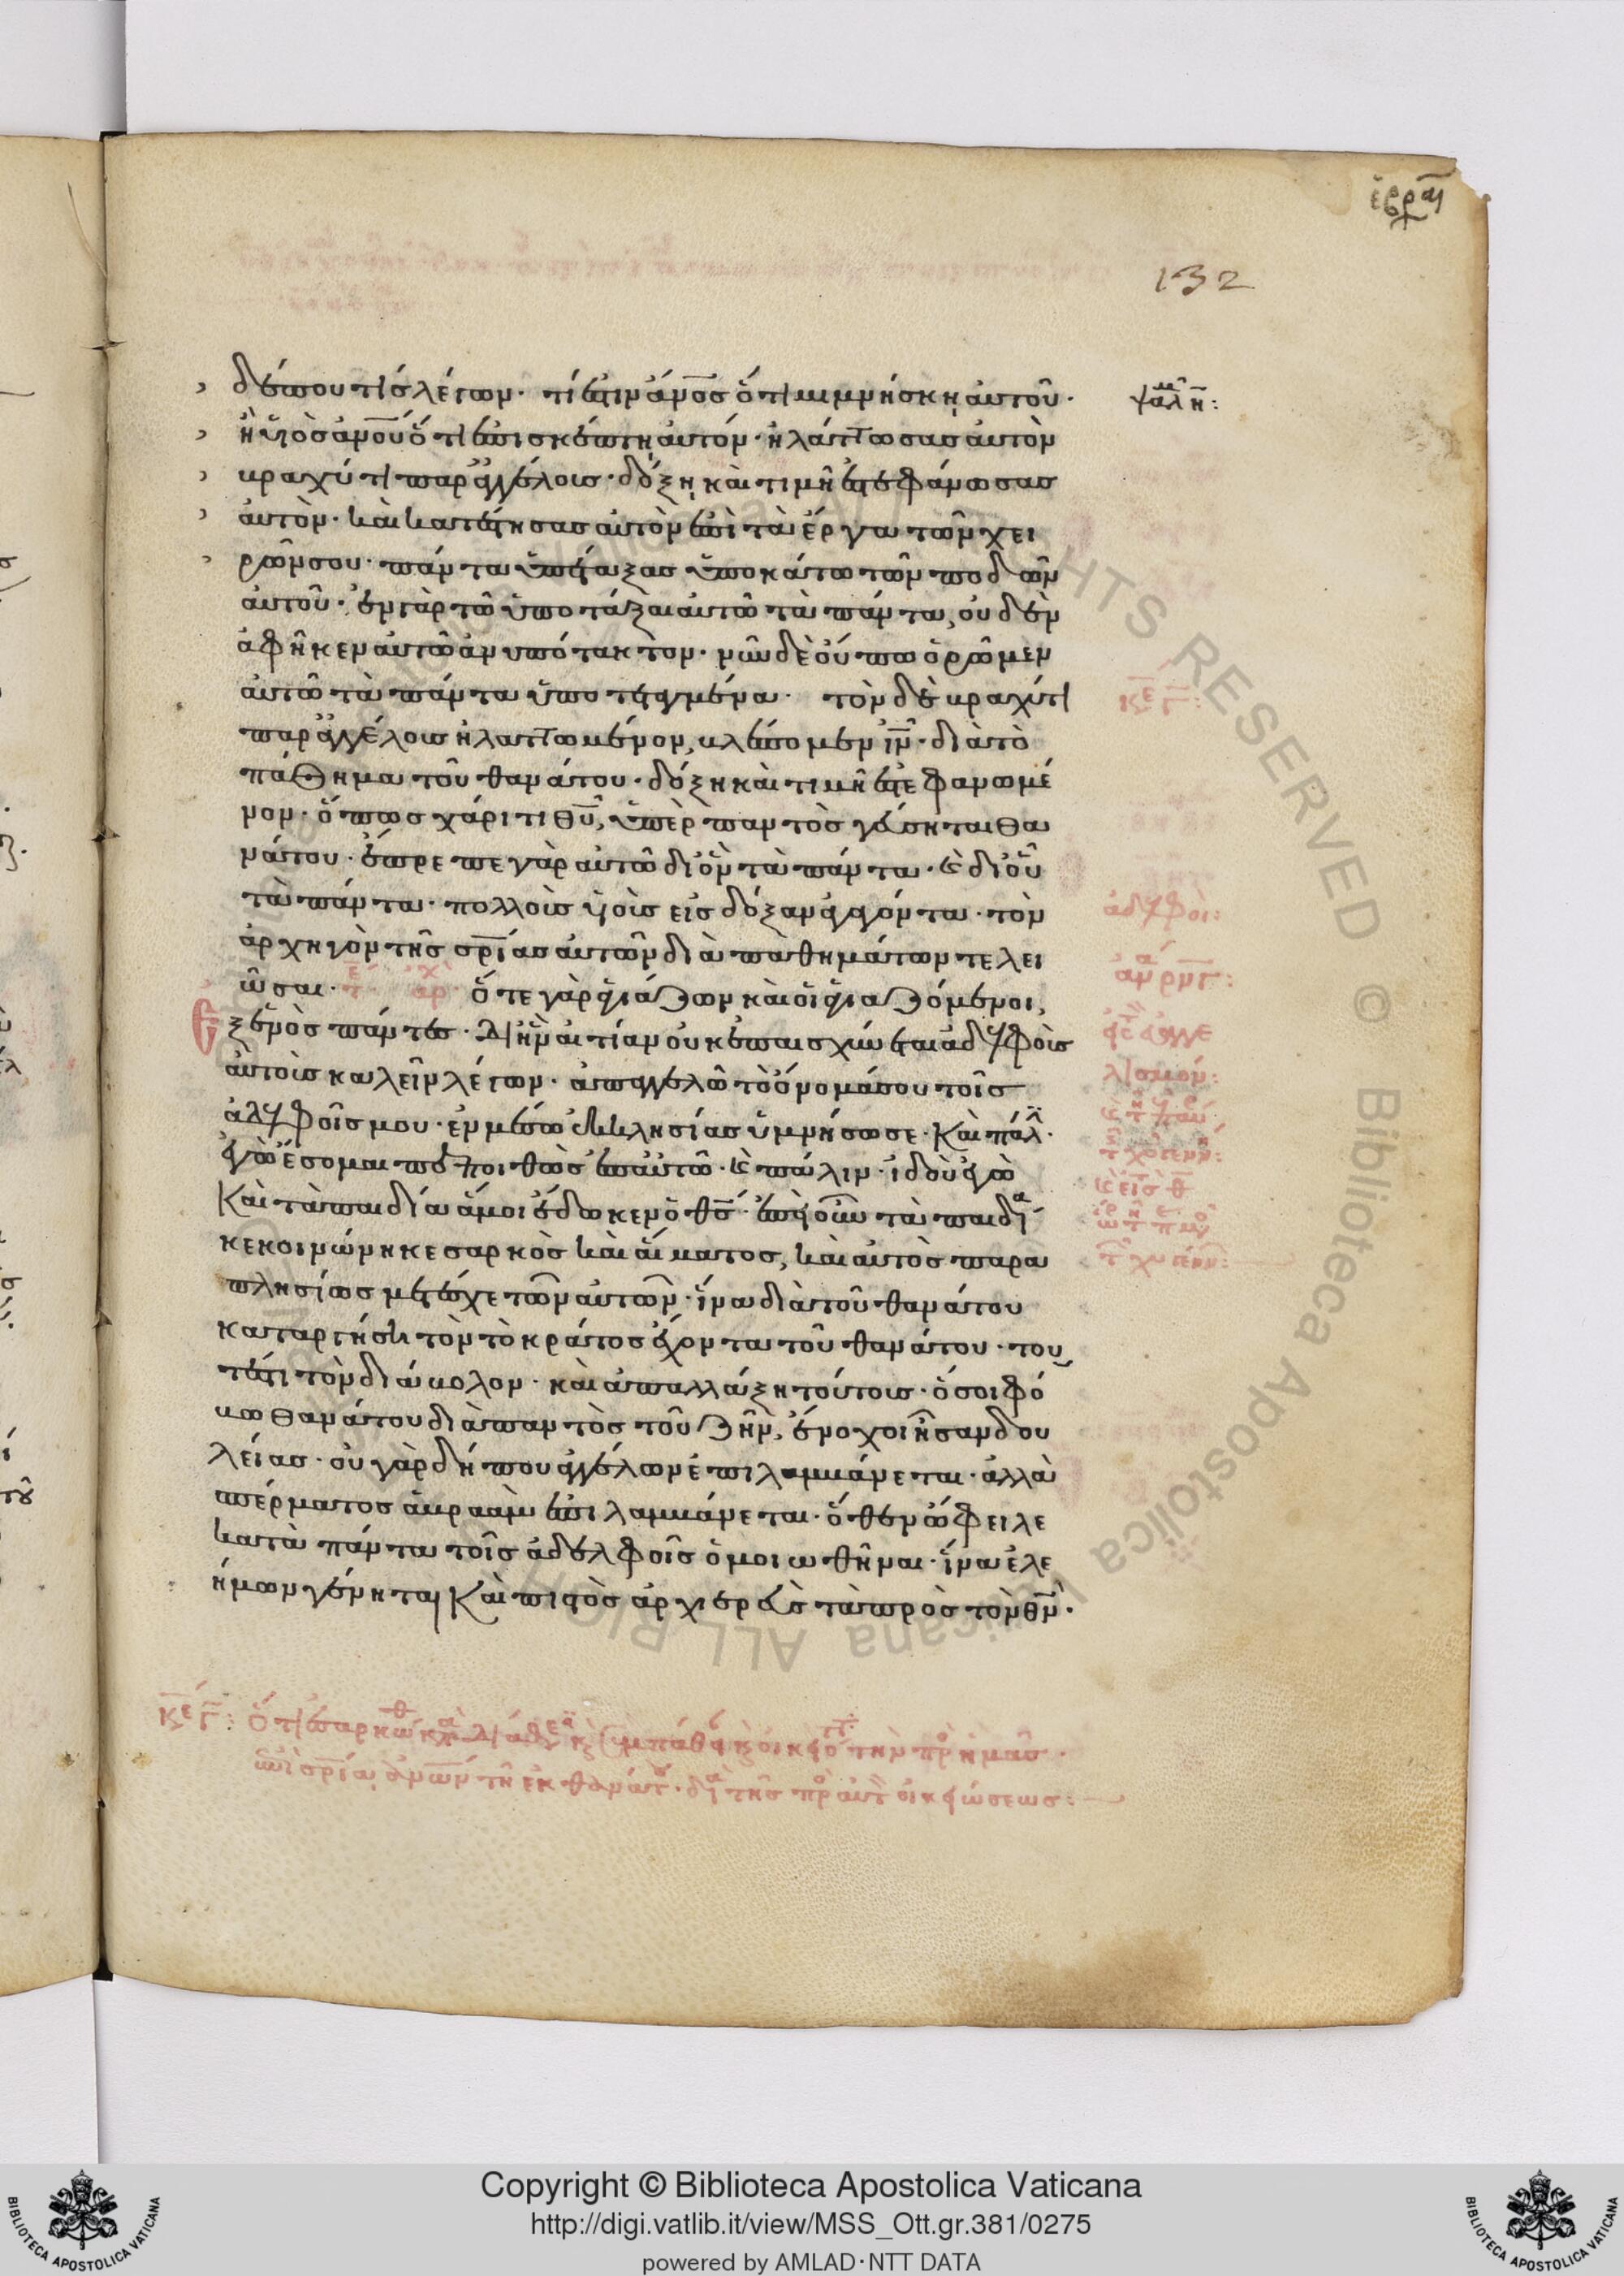 ἑβραι
132
δέ που τὶς λέγων· τί ἐστιν ἄνος ὅτι μιμνήσκη αὐτοῦ· ψαλμ η:
ἢ υἱὸς ἀνου ὅτι ἐπισκέπτη αὐτόν· ἠλάττωσας αὐτὸν
βραχύ τι παρ ἀγγέλους· δόξη καὶ τιμῆ ἐστεφάνωσας
αὐτὸν· καὶ κατέστησας αὐτὸν ἐπὶ τὰ ἔργα τῶν χει
ρῶν σου· πάντα ὑπέταξας ὑποκάτω τῶν ποδῶν
αὐτοῦ· ἐν γὰρ τῶ ὑποτάξαι αὐτῶ τὰ πάντα, οὐδὲν
ἀφῆκεν αὐτῶ ἀνυπότακτον· νῦν δὲ οὔπω ὁρῶμεν
αὐτῶ τὰ πάντα ὑποτεταγμένα· τὸν δὲ βραχύ τι
παρ ἀγγέλους ἠλαττωμένον, βλέπομεν ιν· διὰ τὸ
πάθημα τοῦ θανάτου· δόξη καὶ τιμῆ ἐστεφανωμέ
νον· ὅπως χάριτι θυ, ὑπὲρ παντὸς γεύσηται θα
νάτου· ἔπρεπε γὰρ αὐτῶ δι ὃν τὰ πάντα· καὶ δι οὗ
τὰ πάντα· πολλοὺς υἱοὺς εἰς δόξαν ἀγαγόντα· τὸν
ἀρχηγὸν τῆς σρίας αὐτῶν διὰ παθημάτων τελει
ῶσαι· τε αρχ ὅ τε γὰρ ἁγιάζων καὶ οἱ ἁγιαζόμενοι,
ἐξ ἑνὸς πάντες· δι ἣν αἰτίαν οὐκ ἐπαισχύνεται ἀδελφοὺς
αὐτοὺς καλεῖν λέγων· ἀπαγγελῶ τὸ ὄνομά σου τοῖς
ἀδελφοῖς μου· ἐν μέσω ἐκκλησίας ὑμνήσω σε· καὶ πάλ·
ἐγὼ ἔσομαι πεποιθὼς ἐπ αὐτῶ· καὶ πάλιν· ἰδοὺ ἐγὼ
καὶ τὰ παιδία ἅ μοι ἔδωκεν ὁ θς· ἐπεὶ οὖν τὰ παιδία
κεκοινώνηκε σαρκὸς καὶ αἵματος, καὶ αὐτὸς παρα
πλησίως μετέσχε τῶν αὐτῶν· ἵνα διὰ τοῦ θανάτου
καταργήση τὸν τὸ κράτος ἔχοντα τοῦ θανάτου· του
τέστι τὸν διάβολον· καὶ ἀπαλλάξη τούτους· ὅσοι φό
βω θανάτου διὰ παντὸς τοῦ ζῆν, ἔνοχοι ἦσαν δου
λείας· οὐ γὰρ δήπου ἀγγέλων ἐπιλαμβάνεται· ἀλλὰ
σπέρματος ἀβραὰμ ἐπιλαμβάνεται· ὅθεν ὤφειλε
κατὰ πάντα τοῖς ἀδελφοῖς ὁμοιωθῆναι· ἵνα ἐλε
ήμων γένηται καὶ πιστὸς ἀρχιερεὺς τὰ πρὸς τὸν θν·
κε γ:
ἀδελφοί:
κε γ: ὅτι τὴν πρ ἡμᾶς·
ἐπὶ σρία ἀνων τῆ ἐκ θανάτ· δι τῆς πρ αὐτ οἰκειώσεως:
Copyright © Biblioteca Apostolica Vaticana
http://digi.vatlib.it/view/MSS_Ott.gr.381/0275
powered by AMLAD·NTT DATA
BIBLIOTECA APOSTOLICA VATICANA
BIBLIOTECA APOSTOLICA VATICANA